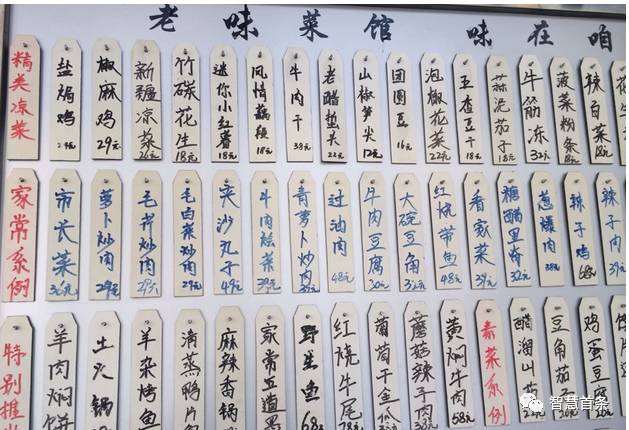 老味菜馆 味在咱
精美凉菜
盐焗鸡
椒麻鸡 29元
新疆凉菜 26元
竹碳花生 18元
迷你小红薯 18元
风情藕段 18元
牛肉干 38元
老醋蜇头 22元
山椒笋尖 12元
团圆豆 16元
泡椒花菜 22元
五香豆干 18元
蒜泥茄子 18元
牛筋冻 32元
菠菜粉条 18元
辣白菜 18元
花生
家常系例
市长菜 36元
萝卜炒肉 29元
毛芹炒肉 29元
毛白菜炒肉 29元
夹沙丸子 49元
牛肉烩菜 39元
青萝卜炒肉 39元
过油肉 48元
牛肉豆腐
大碗豆角
红烧带鱼 48元
看家菜 29元
糖醋里脊 32元
葱爆肉 38元
辣子鸡 68元
辣子肉 39元
特别推
羊肉焖饼
土火锅
羊杂烤鱼
清蒸鸭片
麻辣香锅
家常五道
野生鱼 68元
红烧牛尾 78元
葡萄干金瓜
蘑菇辣子肉 38元
黄焖牛肉 58元
素菜系例
醋溜
豆角茄
鸡蛋豆腐
智慧首条